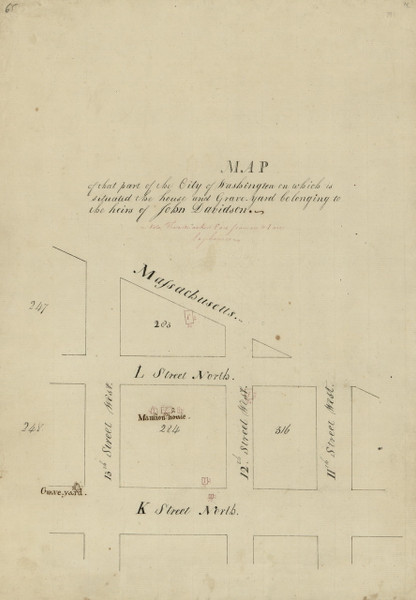 MAP
of that part of the City of Washington on which is
situated the house and Grave Yard belonging to
the heirs of John Davidson.
Massachusetts.
247
283
L Street North.
13th Street West.
Mansion house.
284
12th Street West.
316
11th Street West.
248
Grave yard.
K Street North.